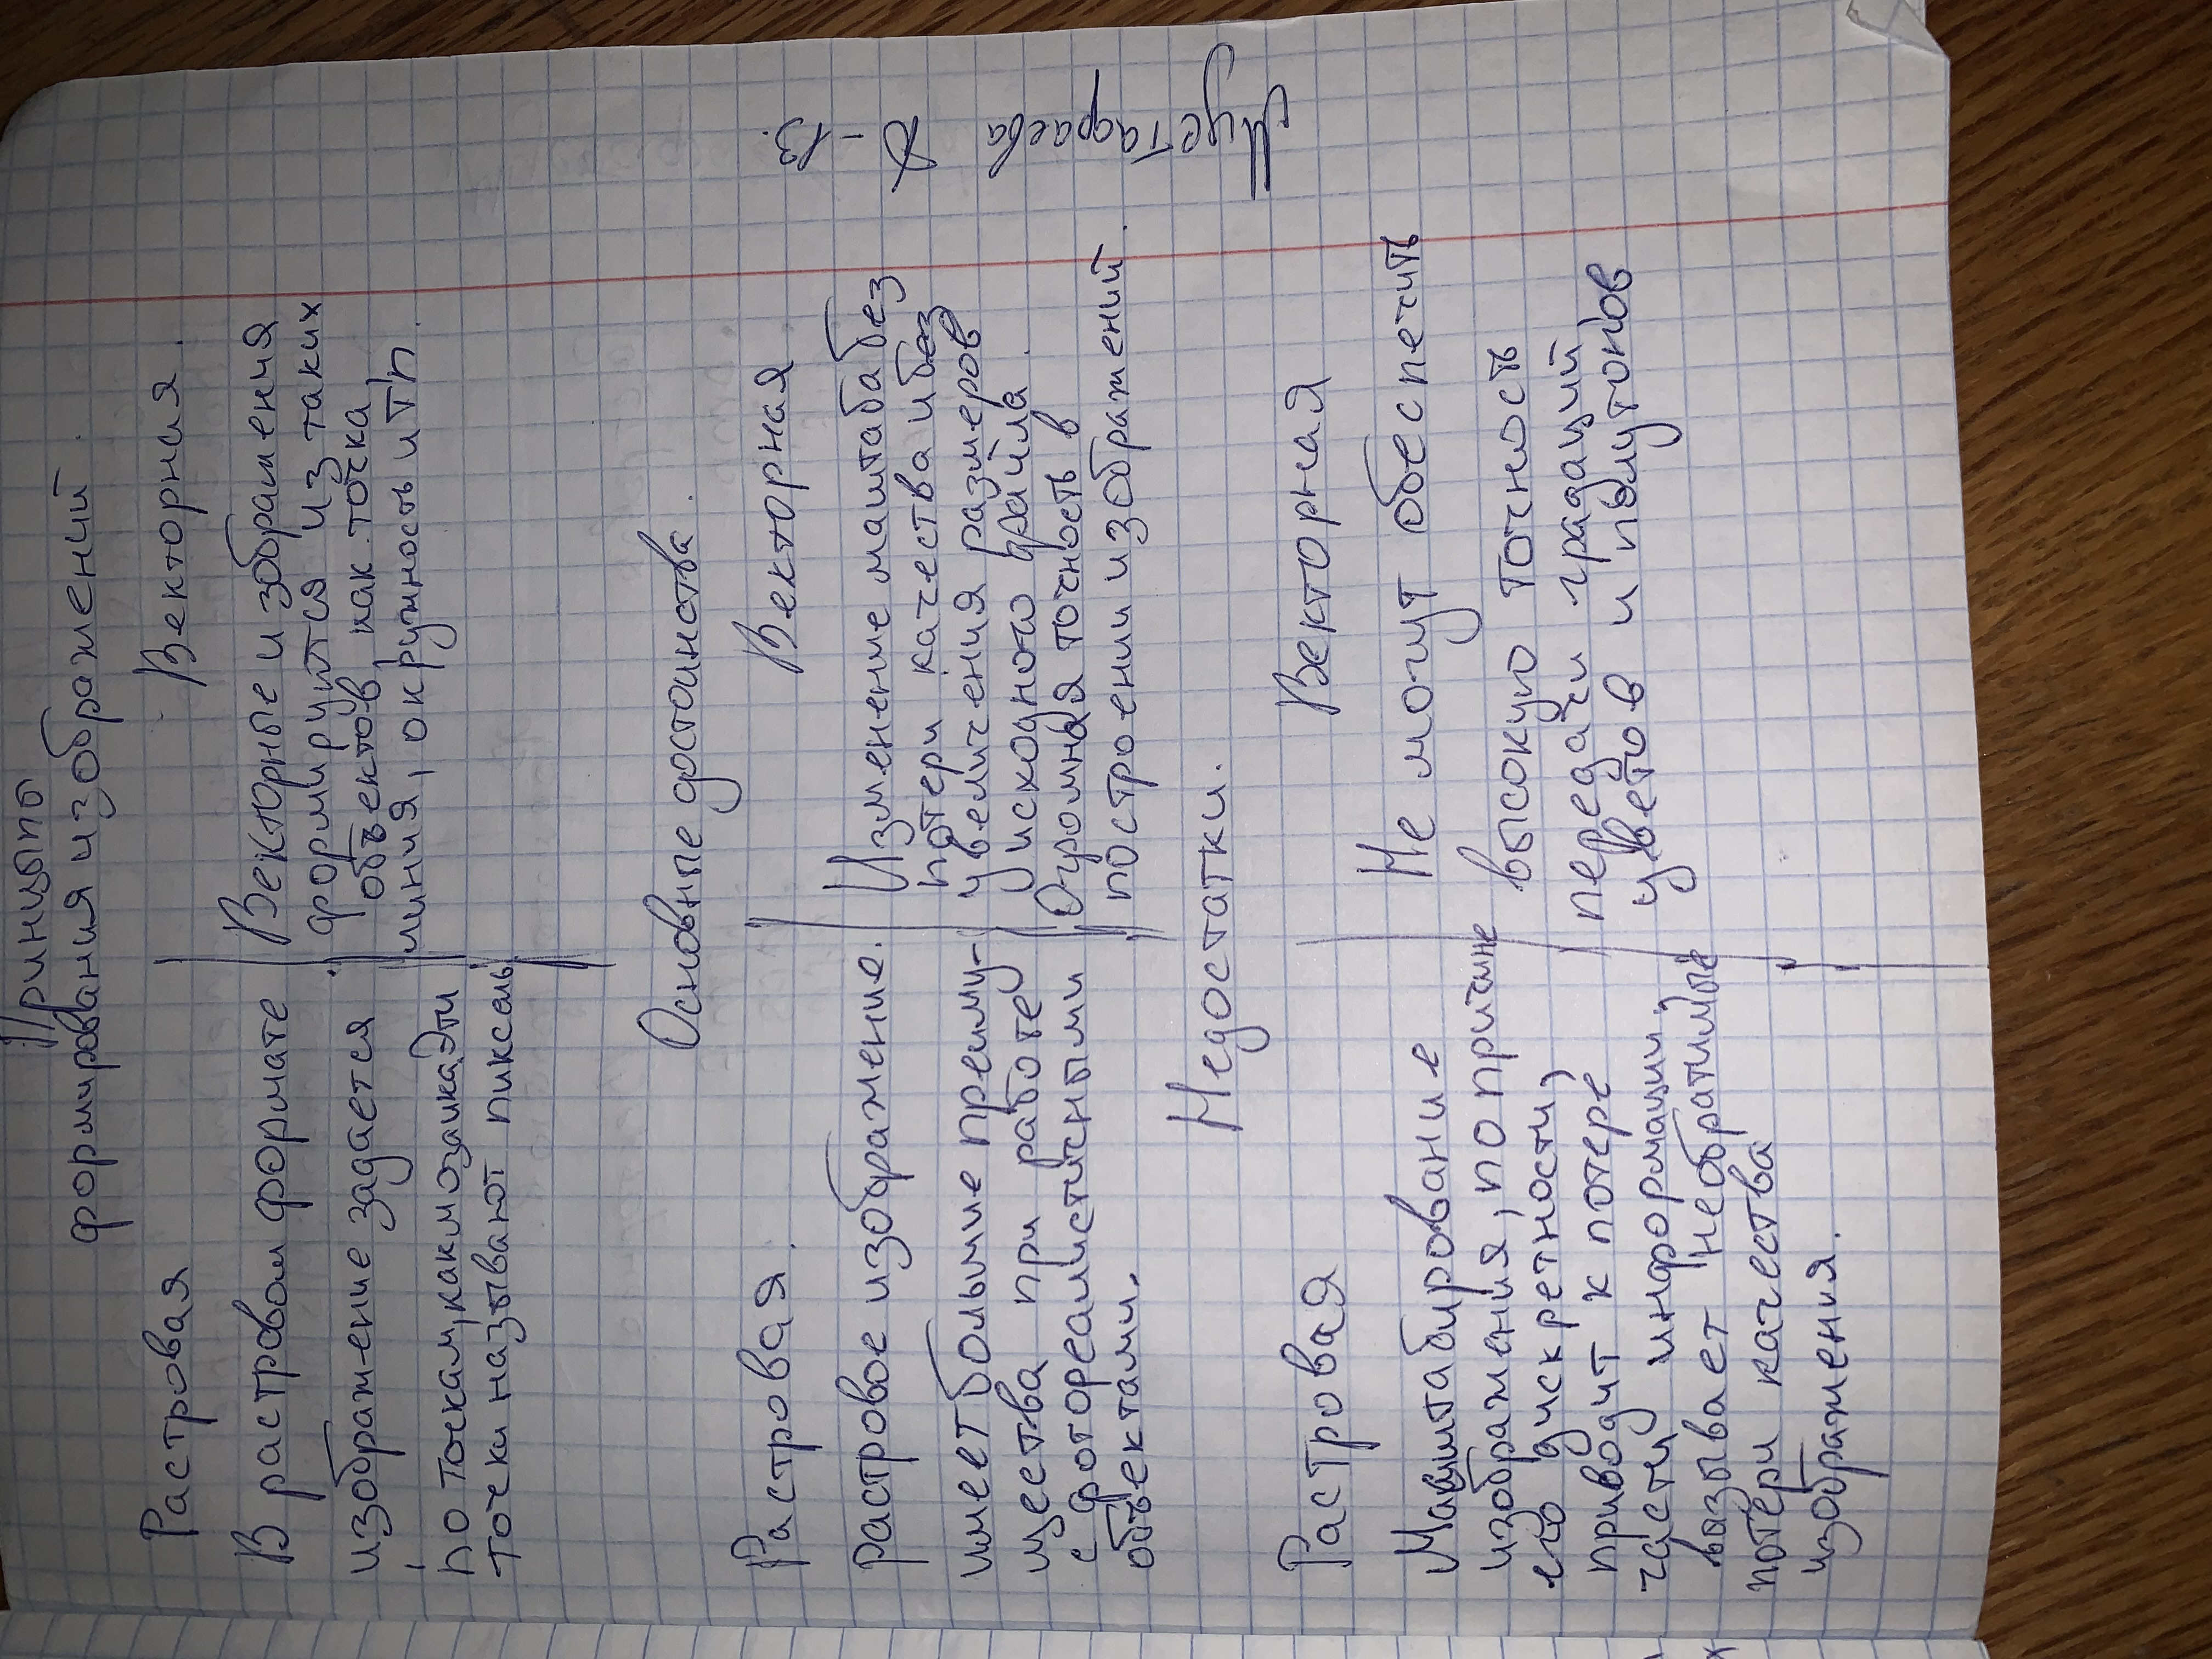 Принцыпы
формирования изображений.
Растровая
Векторная.
В растровом формате
изображение задается
по точкам, как мозаика. Эти
точки называют пиксель
Векторные изображения
формируются из таких
объектов, как точка,
линия, окружность и тп.
Основные достоинства.
Растровая.
Векторная
Растровое изображение.
имеет большие преиму-
щества при работе
с фотореалистичными
объектами.
Изменение маштаба без
потери качества и без
увеличения размеров
исходного файла.
Огромная точность в
построении изображений.
Недостатки.
Растровая
Векторная
Масштабирование
изображения, по причине
его дискретности,
приводит к потере
части информации,
вызывает необратимые
потери качества
изображения.
Не могут обеспечить
высокую точность
передачи градаций
цветов и полутонов